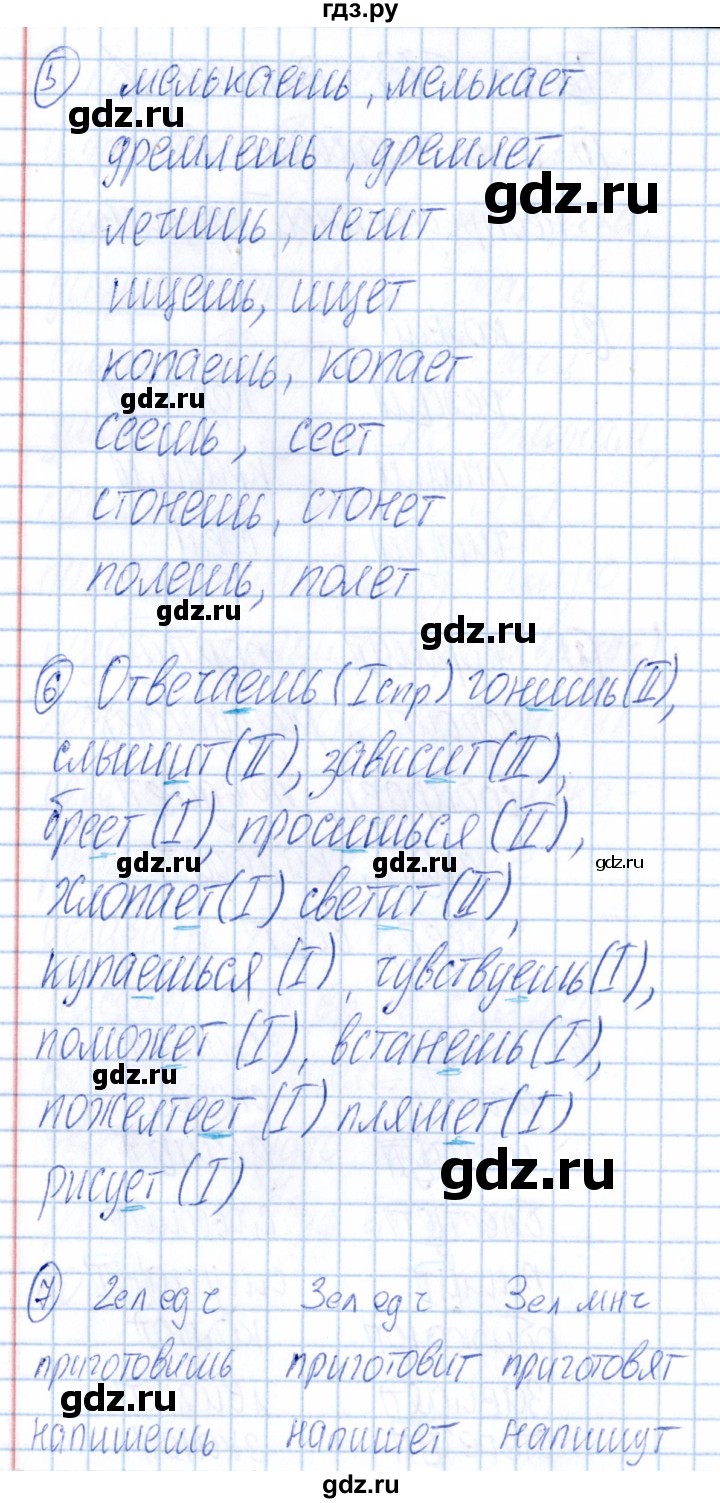 гдз.ру
5 мелькаешь, мелькает
gdz.ru
дремлешь, дремлет
gdz.ru
лечишь, лечит
ищешь, ищет
копаешь, копает
gdz.ru
сеешь, сеет
стонешь, стонет
полешь, полет
gdz.ru
gdz.ru
6 Отвечаешь (I спр) гонишь (II),
слышит (II), зависит (II),
бреет (I), просишься (II),
gdz.ru gdz.ru gdz.ru
хлопает (I) светит (II),
купаешься (I), чувствуешь (I),
поможет (I), встанешь (I),
gdz.ru
пожелтеет (I) пляшет (I)
gdz.ru
рисует (I)
7 2ел ед ч 3ел ед ч 3ел мн ч
приготовишь приготовит приготовят
gdz.ru
напишешь напишет напишут
gdz.ru